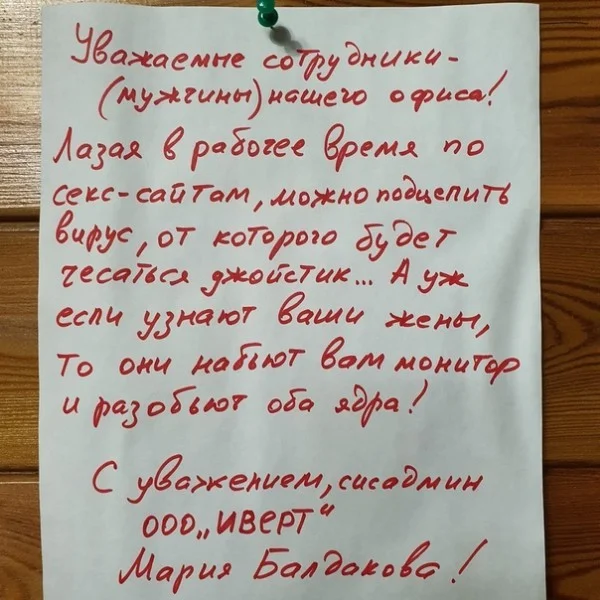 Уважаемые сотрудники-
(мужчины) нашего офиса!
Лазая в рабочее время по
секс-сайтам, можно подцепить
вирус, от которого будет
чесаться джойстик... А уж
если узнают ваши жены,
то они набьют вам монитор
и разобьют оба ядра!
С уважением, сисадмин
ООО „ИВЕРТ“
Мария Балдакова!